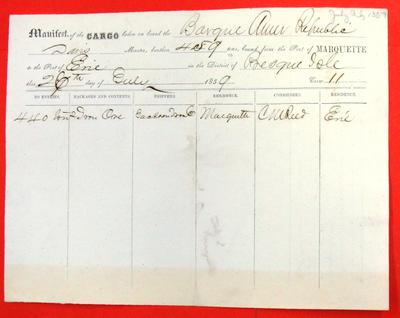 Manifest, of the CARGO taken on board the Barque Amer Republic
Davis Master, burthen 459 tons, bound from the Port of MARQUETTE
to the Port of Erie in the District of Presque Isle
this 26th day of July 1859 11
NO ENTRIES. PACKAGES AND CONTENTS. SHIPPERS. RESIDENCE. CONSIGNEES. RESIDENCE.
440 Tons Iron Ore Jackson Iron Co Marquette C M Reed Erie